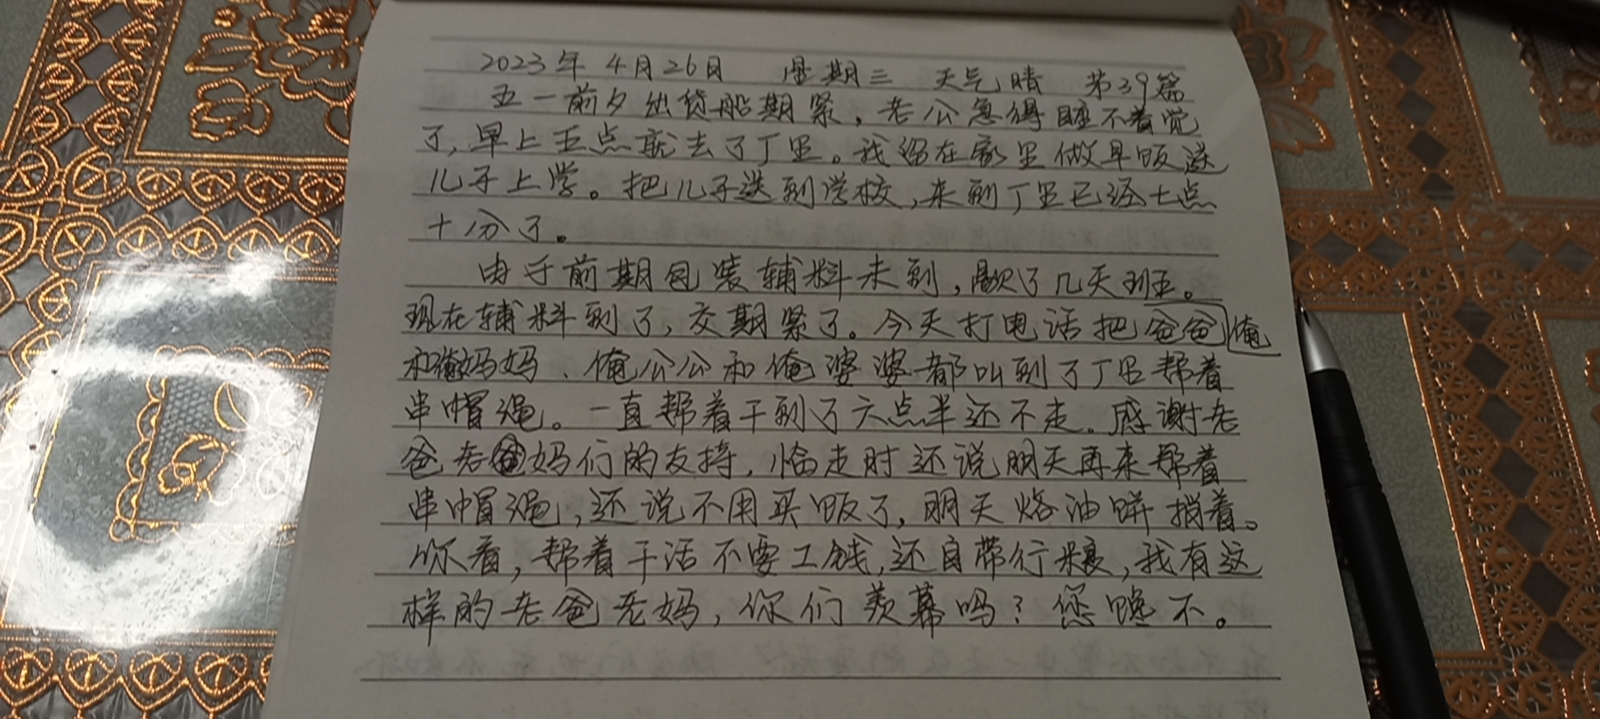 2023年4月26日 星期三 天气晴 第39篇
五一前夕出货船期紧，老公急得睡不着觉
了，早上五点就去了厂里。我留在家里做早饭送
儿子上学。把儿子送到学校，来到厂里已经七点
十分了。
由于前期包装辅料未到，歇了几天班。
现在辅料到了，交期紧了。今天打电话把爸爸俺
和俺妈妈、俺公公和俺婆婆都叫到了厂里帮着
串帽绳。一直帮着干到了六点半还不走。感谢老
爸老妈们的支持，临走时还说明天再来帮着
串帽绳，还说不用买饭了，明天烙油饼捎着。
你看，帮着干活不要工钱，还自带行粮，我有这
样的老爸老妈，你们羡慕吗？您馋不。